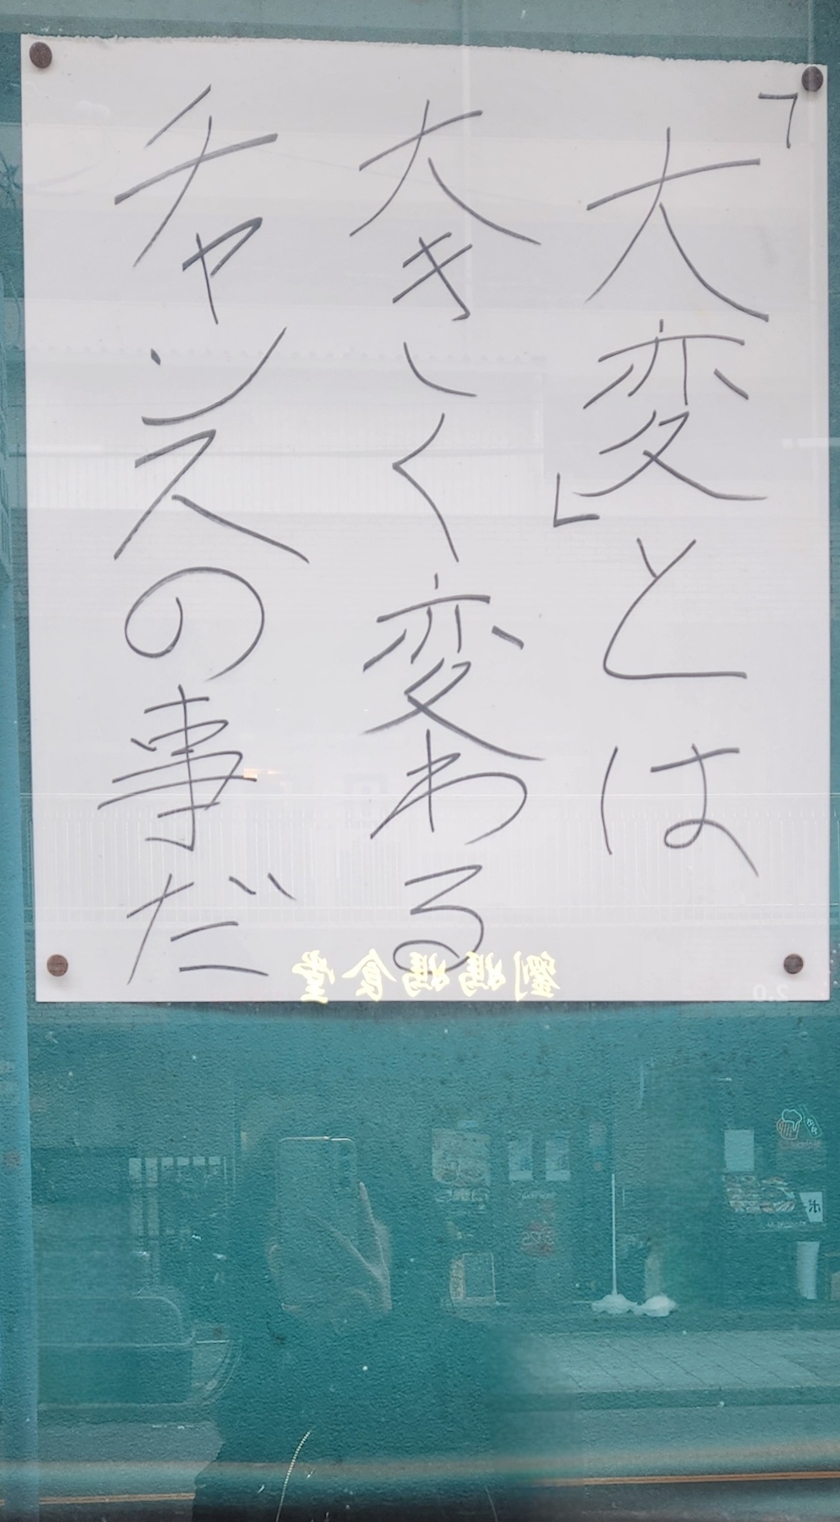 「大変」とは
大きく変わる
チャンスの事だ
劉媽媽食堂